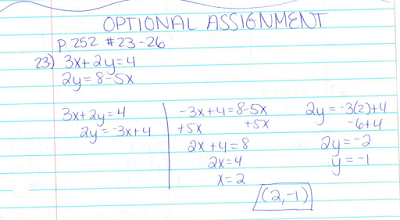 OPTIONAL ASSIGNMENT
p. 252 #23-26
23) 3x+2y=4
2y=8-5x
3x+2y=4
2y=-3x+4
-3x+4=8-5x
+5x +5x
2x+4=8
2x=4
x=2
2y=-3(2)+4
-6+4
2y=-2
y=-1
(2,-1)